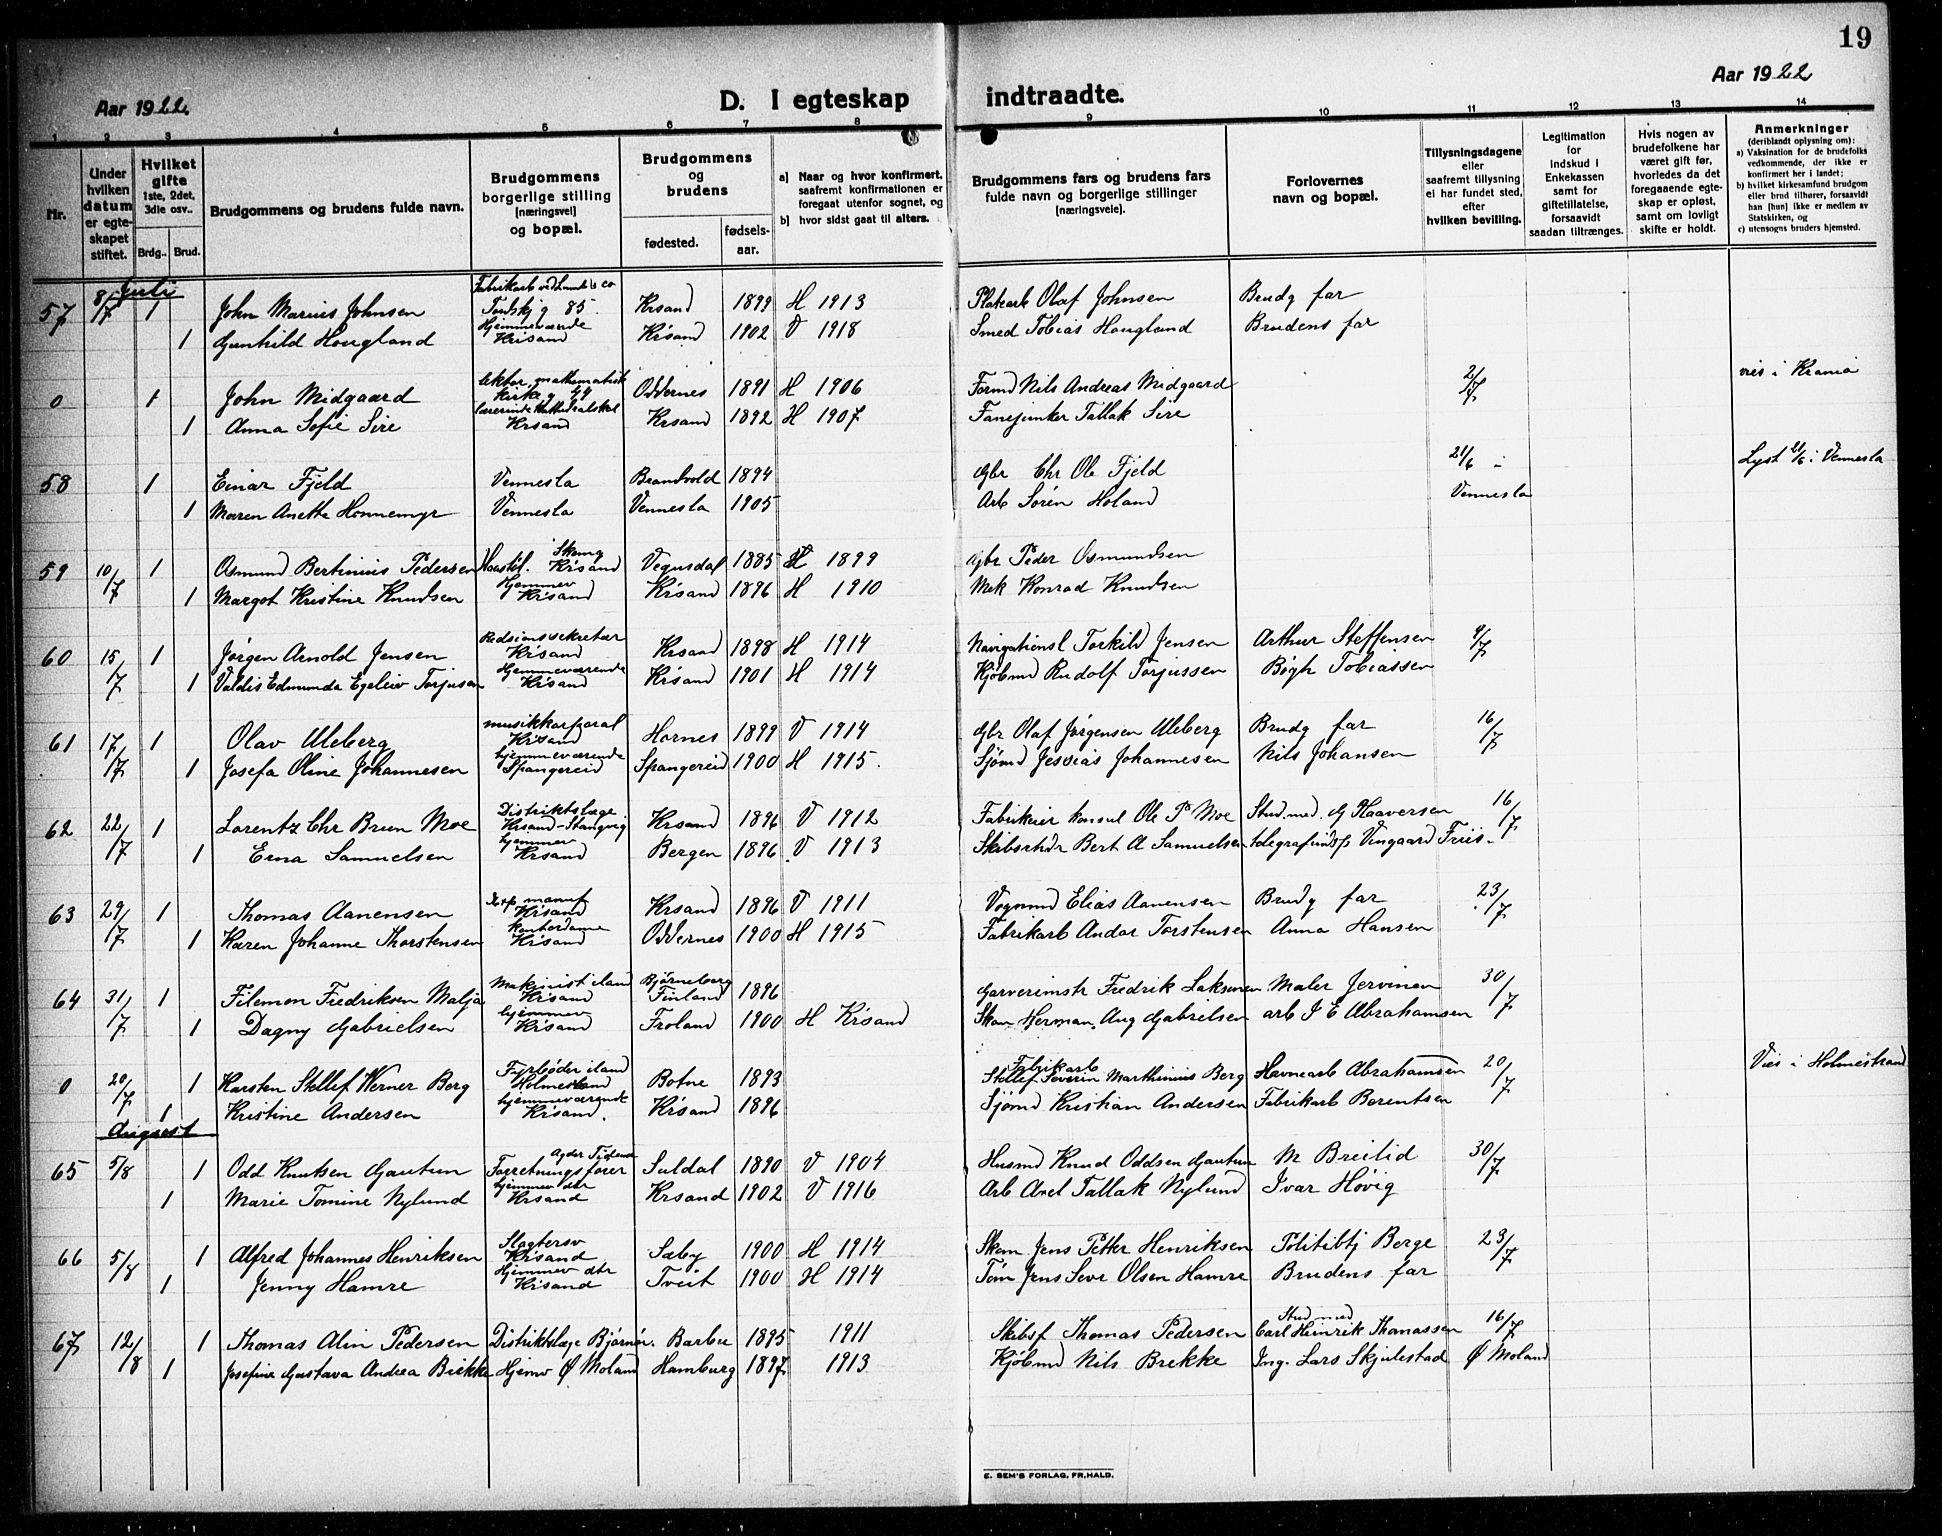 19
Aar 1922.
D. I egteskap indtraadte.
Aar 1922
1 2 3 4 5 6 7 8 9 10 11 12 13 14
Nr.
Under hvilken datum er egteskapet stiftet.
Hvilket gifte 1ste, 2det, 3die osv..
Brdg.. Brud.
Brudgommens og brudens fulde navn.
Brudgommens borgerlige stilling [næringsvei] og bopæl.
Brudgommens og brudens
fødested. fødselsaar.
a] Naar og hvor konfirmert. saafremt konfirmationen er foregaat utenfor sognet, og
b] hvor sidst gaat til alters.
Brudgommens fars og brudens fars fulde navn og borgerlige stillinger [næringsveie].
Forlovernes navn og bopæl.
Tillysningsdagene eller saafremt tillysning ei har fundet sted, efter hvilken bevilling.
Legitimation for indskud i Enkekassen samt for giftetillatelse, forsaavidt saadan tiltrænges.
Hvis nogen av brudefolkene har været gift før, hvorledes da det foregaaende egteskap er opløst, samt om lovligt skifte er holdt.
Anmerkninger (deriblandt oplysning om):
a) Vaksination for de brudefolks vedkommende, der ikke er konfirmert her i landet;
b) hvilket kirkesamfund brudgom eller brud tilhører, forsaavidt han [hun] ikke er medlem av Statskirken, og
c) utensogns bruders hjemsted.
Juli
57 8/7 1 John Marius Johnsen Krsand 1899 H 1913 Platearb Olaf Johnsen Brudg far
1 Gunhild Hougland Hjemmeværende Krisand Krsand 1902 V 1918 Smed Tobias Hougland Brudens far
0 1 John Midgaard Oddernes 1891 H 1906 Formd Nils Andreas Midgaard 2/7 vies i Krania
1 Anna Sofie Sire Krsand Krsand 1892 H 1907 Fanejunker Tallak Sire
58 1 Einar Fjeld Vennesla Brandvold 1894 Gbr Chr Ole Fjeld 21/6 i Lyst 21/6 i Vennesla
1 Maren Anette Honnemyr Vennesla Vennesla 1905 Arb Søren Holand Vennesla
59 10/7 1 Osmund Bertinius Pedersen Krisand Vegusdal 1885 H 1899 Gbr Peder Osmundsen
1 Margot Kristine Knudsen Hjemmev Krisand Krsand 1896 H 1910 Mek Konrad Knudsen
60 15/7 1 Jørgen Arnold Jensen Krisand Krsand 1898 H 1914 Navigationsl Torkild Jensen Arthur Steffensen 9/7
1 Valdis Edmunda Egeleiv Torjusen Hjemmeværende Krisand Krsand 1901 H 1914 Kjøbmd Rudolf Torjussen Bøgh Tobiassen
61 17/7 1 Olav Uleberg musikkorporal Krisand Hornes 1899 V 1914 Gbr Olaf Jørgensen Uleberg Brudg far 16/7
1 Josefa Oline Johannesen hjemmeværende Spangereid Spangereid 1900 H 1915. Sjømd Jessias Johannesen Nils Johansen
62 22/7 1 Lorentz Chr Brun Moe Distriktslæge Krisand-Stangvig Krsand 1896 V 1912 Fabrikeier konsul Ole P Moe Stud. med. G Haaversen 16/7
1 Erna Samuelsen hjemmev Krisand Bergen 1896 V 1913 Skibsrheder Bert A Samuelsen telegrafinsp Vingaard Friis.
63 29/7 1 Thomas Aanensen Krisand Krsand 1896 V 1911 Vognmd Elias Aanensen Brudg far 23/7
1 Karen Johanne Thorstensen kontordame Krisand Oddernes 1900 H 1915 Fabrikarb Andor Torstensen Anna Hansen
64 31/7 1 Filemon Fredriksen Malja Maskinist iland Krisand Bjørneborg Finland 1896 Garverimstr Fredrik Laksonen Maler Jervinen 30/7
1 Dagny Gabrielsen hjemmev Krisand Froland 1900 H Krisand Skom Herman. Aug Gabrielsen arb I E Abrahamsen
0 20/7 1 Karsten Stellef Werner Berg Fyrbøder iland Holmestrand Botne 1893 Fabrikarb Stellef Severin Marthinius Berg Havnearb Abrahamsen 20/7 Vies i Holmestrand
1 Kristine Andersen hjemmeværende Krisand. Krsand 1896 Sjømd Kristian Andersen Fabrikarb Berentsen
August
65 5/8 1 Odd Knutsen Gautun Agder Tidende Forretningsfører Suldal 1890 V 1904 Husmd Knud Oddsen Gautun M Breilid 30/7
1 Marie Tomine Nylund hjemmev dtr Krsand Krsand 1902 V 1916 Arb Axel Tallak Nylund Ivar Høvig
66 5/8 1 Alfred Johannes Henriksen Slagtersv Krisand Sæby 1900 H 1914 Skom Jens Petter Henriksen Politibtj Berge 23/7
1 Jenny Hamre Hjemmev dtr Krisand Tveit 1900 H 1914 Tøm Jens Sevr Olsen Hamre Brudens far
67 12/8 1 Thomas Alin Pedersen Distriktslæge Bjørnør. Barbu 1895 1911 Skibsf Thomas Pedersen Stud med Carl Heinrik Thomassen 16/7
1 Josefine Gustava Andrea Brekke Hjemv Ø Moland Hamburg 1897 1913 Kjøbmd Nils Brekke Ing. Lars Skjulestad Ø Moland
E. SEM'S FORLAG, FR.HALD.